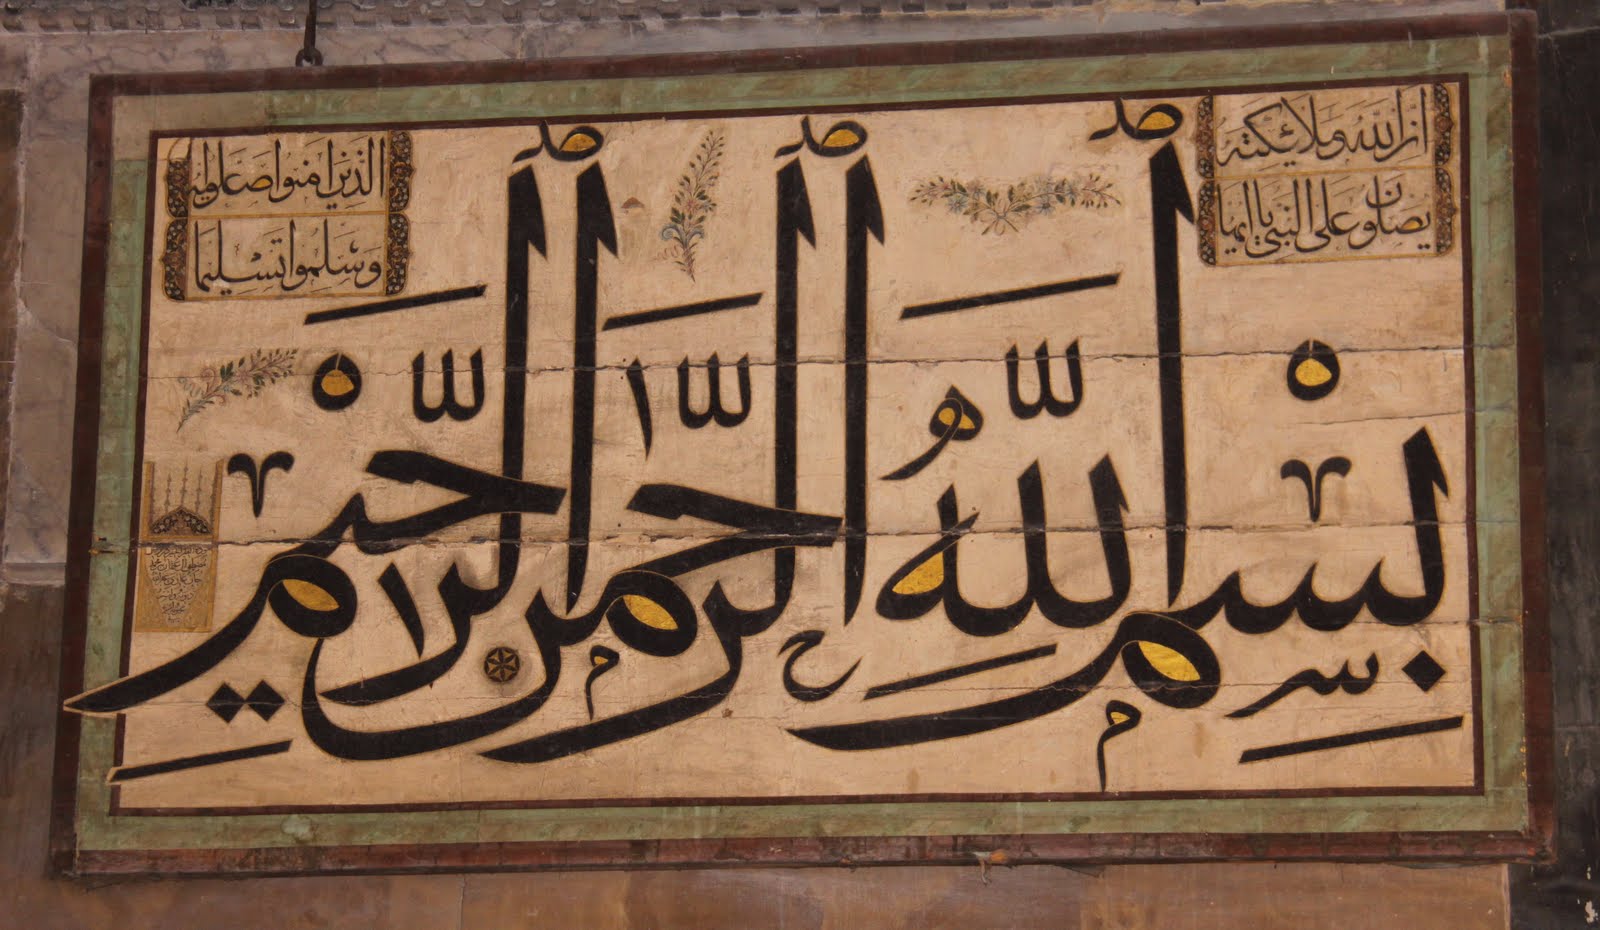 بسم الله الرحمن الرحيم
ان الله وملائكته
يصلون على النبي يا ايها
الذين امنوا صلوا عليه
وسلموا تسليما